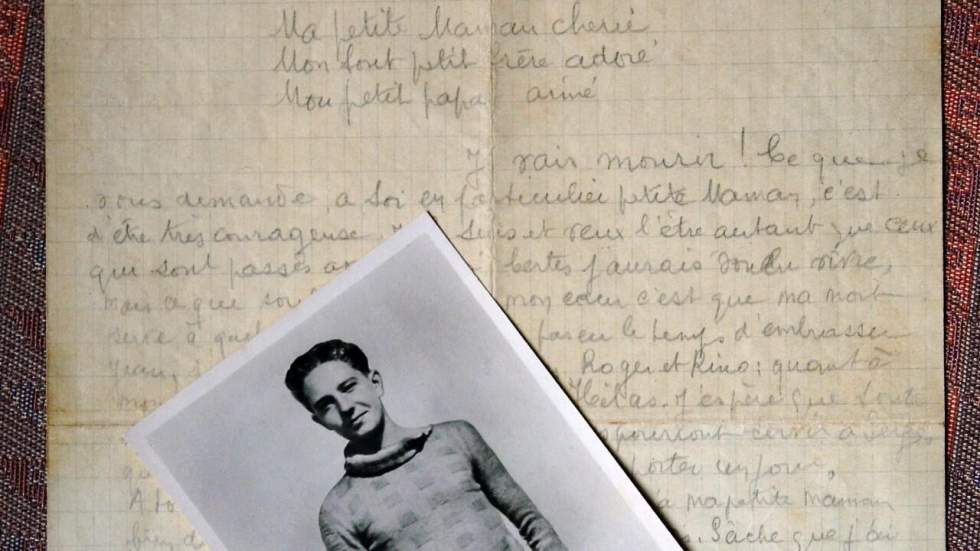 Ma petite Maman cherie
Mon tout ptit frère adoré
Mon petit papa aimé
Je vais mourir ! Ce que je
vous demande, a toi en particulier petite Maman, c'est
d'être très courageuse, je le suis et veux l'être autant que ceux
qui sont passés av bertes j'aurais voulu vivre,
mais ce que sou mon cœur c'est que ma mort
serve à quel pas eu le temps d'embrasser
Jean, Roger et Rino ; quant à
mon Hélas. J'espère que toutes
pourront servir à Serge,
porter un jour,
A to a ma petite Maman
bien d Sache que j'ai